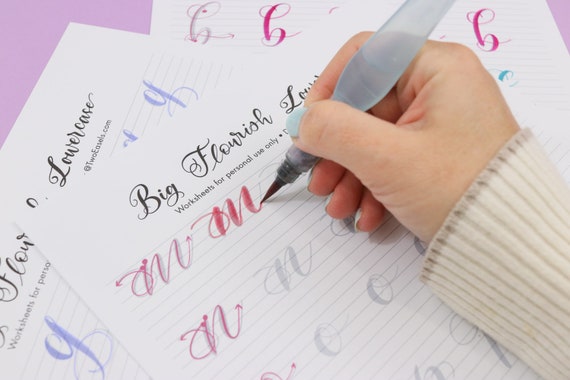 b b b
Lowercase
@TwoEasels.com
Big Flourish Low
Worksheets for personal use only •
g
m m
m n o
n o o
Flou
Worksheets for person
g